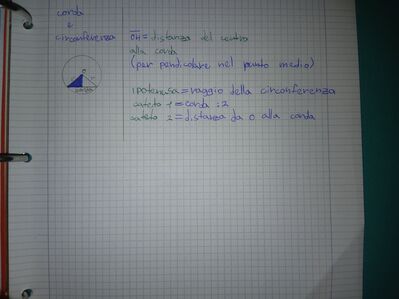 corda
e
circonferenza
OH = distanza del centro
alla corda
(per pendicolare nel punto medio)
r
corda
ipotenusa = raggio della circonferenza
cateto 1 = corda : 2
cateto 2 = distanza da o alla corda